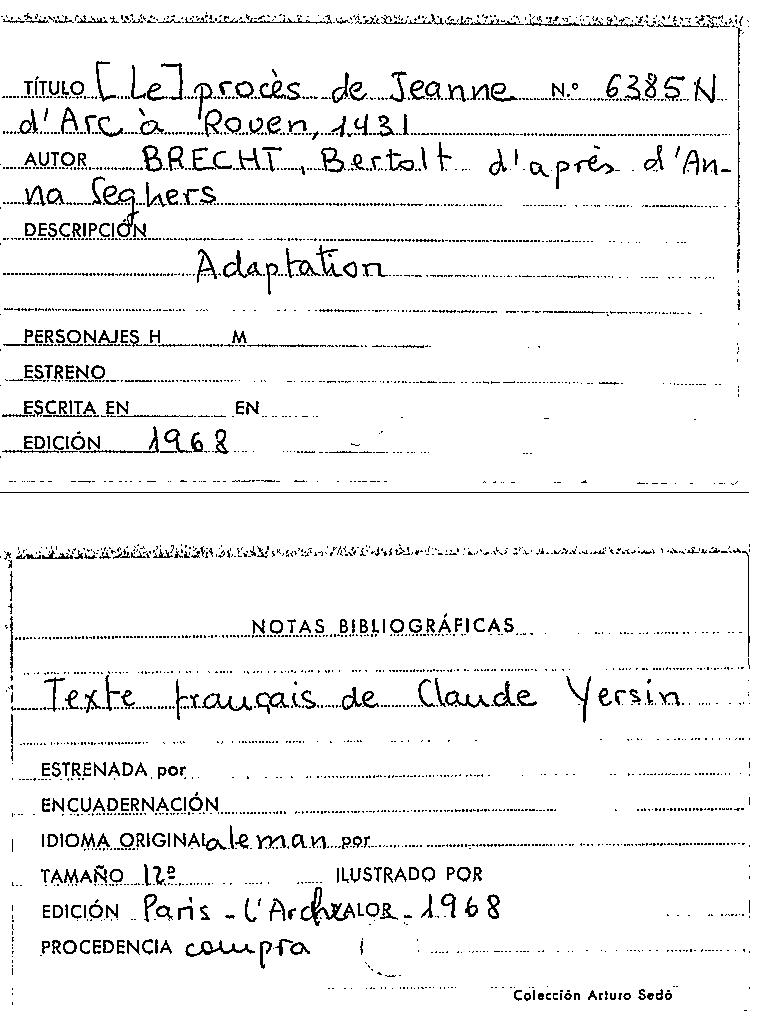 TÍTULO [Le] procès de Jeanne N.º 6385 N
d'Arc à Rouen, 1431
AUTOR BRECHT, Bertolt d'après d'An-
na Seghers
DESCRIPCIÓN
Adaptation
PERSONAJES H M
ESTRENO
ESCRITA EN EN
EDICIÓN 1968
NOTAS BIBLIOGRÁFICAS
Texte français de Claude Yersin
ESTRENADA por
ENCUADERNACIÓN
IDIOMA ORIGINAL aleman por
TAMAÑO 12º ILUSTRADO POR
EDICIÓN Paris - L'Arche VALOR - 1968
PROCEDENCIA compra
Colección Arturo Sedó